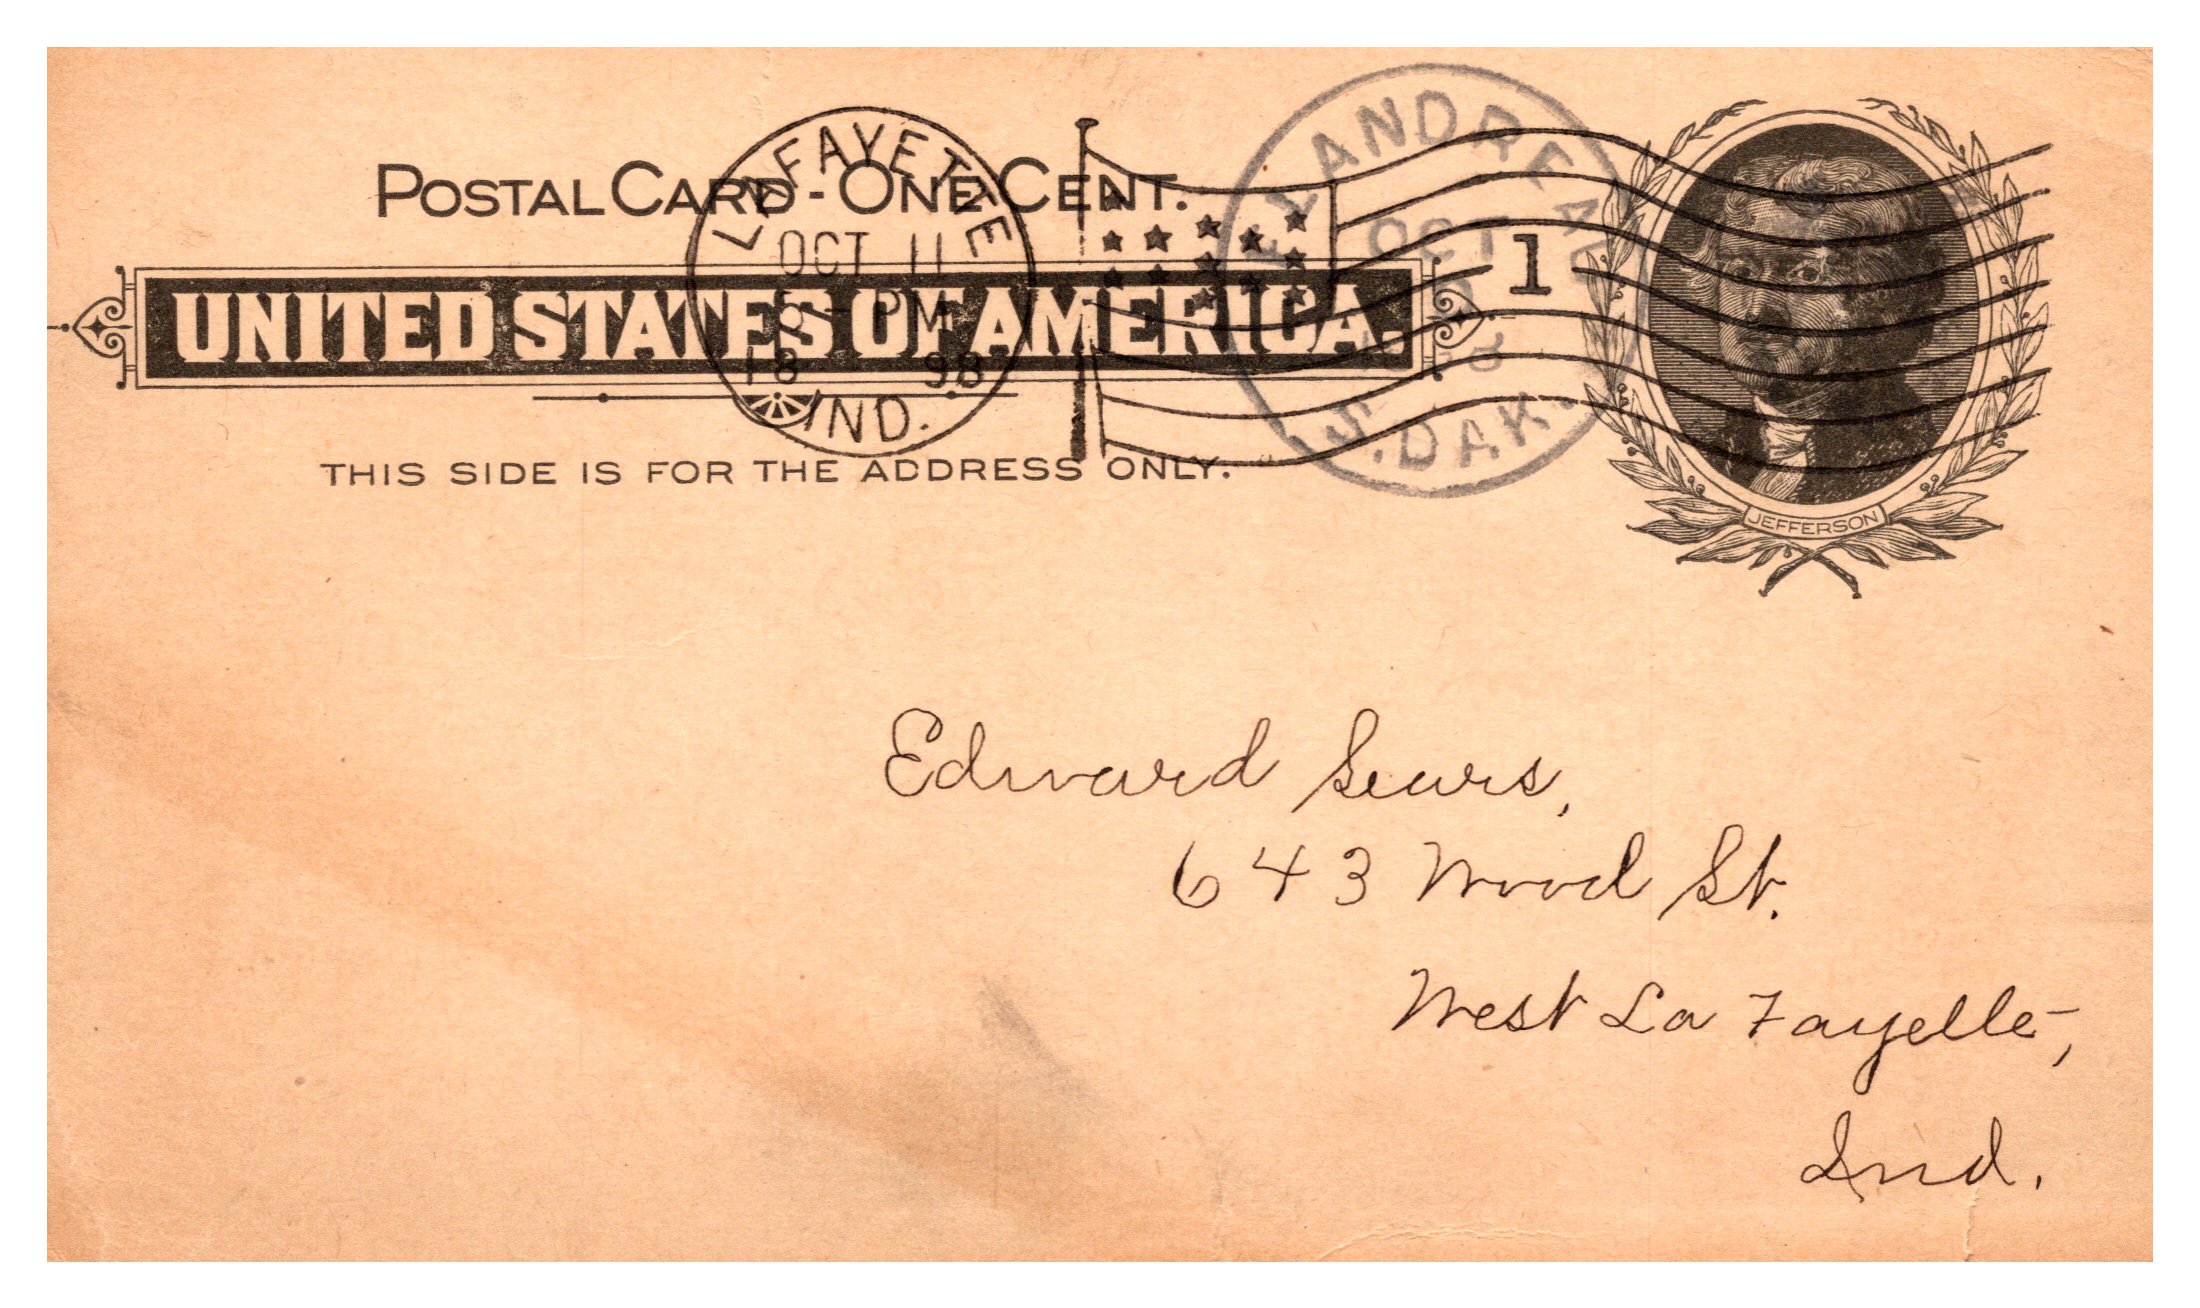 POSTAL CARD - ONE CENT.
UNITED STATES OF AMERICA.
THIS SIDE IS FOR THE ADDRESS ONLY.
LAFAYETTE
OCT 11
PM
18 98
IND.
FLANDREAU
OCT
S. DAK.
1
JEFFERSON
Edward Sears,
643 Wood St.
West La Fayette,
Ind.